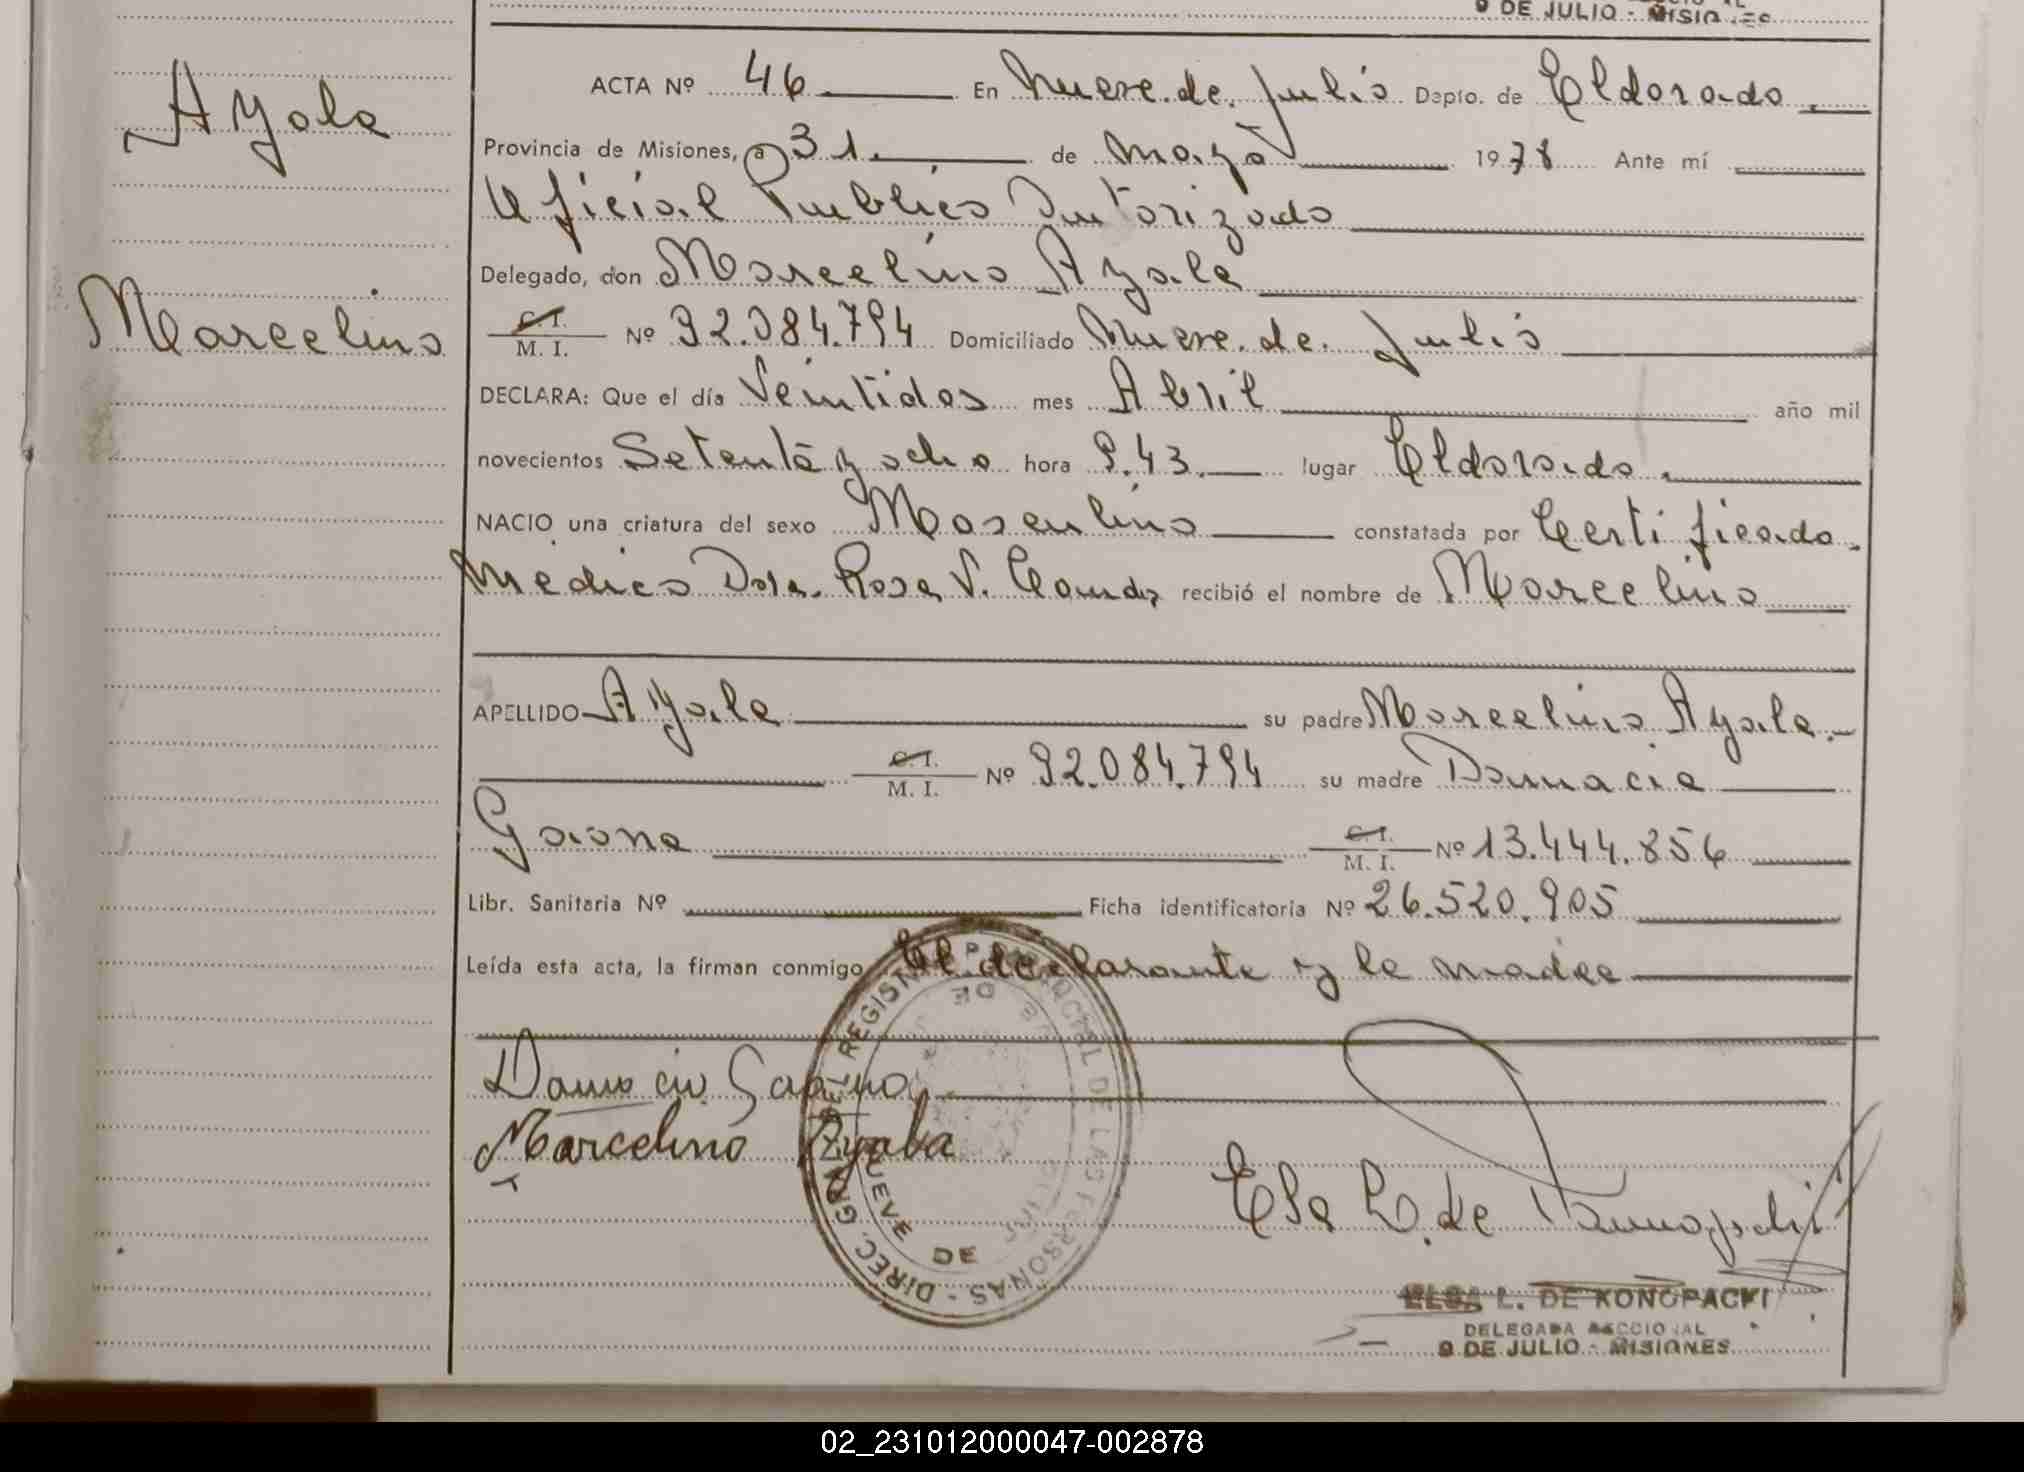 9 DE JULIO - MISIONES
Ayala
Marcelino
ACTA Nº 46 En Nueve de Julio Depto. de Eldorado.
Provincia de Misiones, a 31 de mayo 1978 Ante mí
Oficial Publico Autorizado
Delegado, don Marcelino Ayala
C. I.
M. I. Nº 92.084.794 Domiciliado Nueve de Julio
DECLARA: Que el día Veintidos mes Abril año mil
novecientos Setenta y ocho hora 9.43. lugar Eldorado.
NACIO una criatura del sexo Masculino constatada por Certificado
Médico Dora. Rosa V. recibió el nombre de Marcelino
APELLIDO Ayala su padre Marcelino Ayala.
C. I.
M. I. Nº 92.084.794 su madre Damacia
Gaona C. I.
M. I. Nº 13.444.856
Libr. Sanitaria Nº Ficha identificatoria Nº 26.520.905
Leída esta acta, la firman conmigo El declarante y la madre
Damacia Gaona
Marcelino Ayala
DIREC. GRAL. DEL REGISTRO PROVINCIAL DE LAS PERSONAS -
NUEVE DE JULIO
Elsa L. de Konopacki
ELSA L. DE KONOPACKI
DELEGADA SECCIONAL
9 DE JULIO - MISIONES
02_231012000047-002878